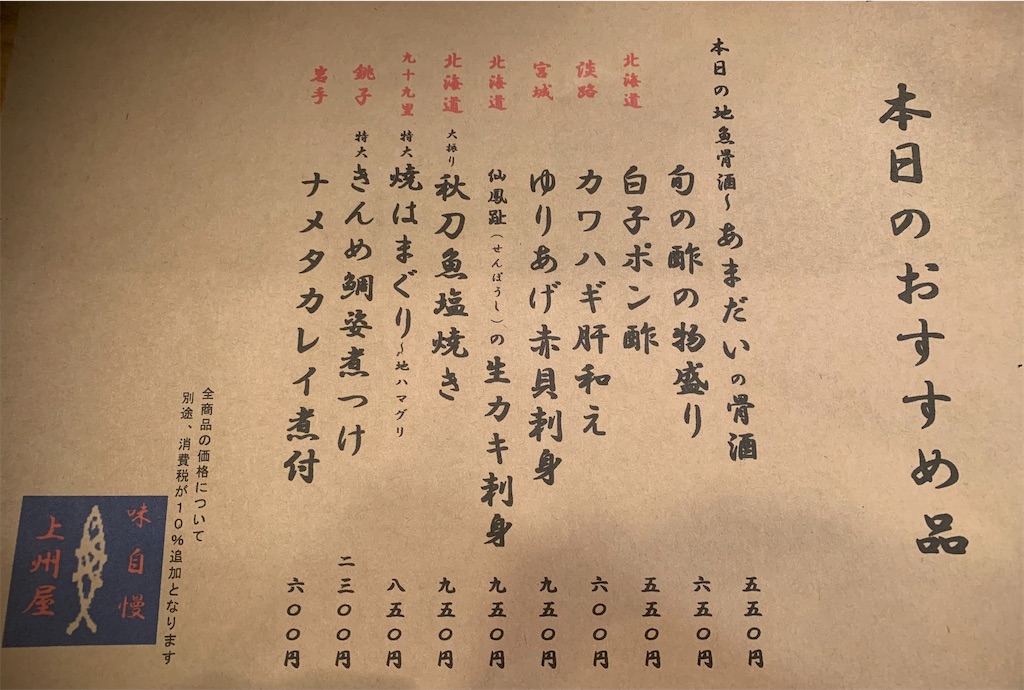 本日のおすすめ品
本日の地魚骨酒～あまだいの骨酒 五五〇円
旬の酢の物盛り 六五〇円
北海道 白子ポン酢 五五〇円
淡路 カワハギ肝和え 六〇〇円
宮城 ゆりあげ赤貝刺身 九五〇円
北海道 仙鳳趾（せんぽうし）の生カキ刺身 九五〇円
北海道 大振り 秋刀魚塩焼き 九五〇円
九十九里 特大 焼はまぐり～地ハマグリ 八五〇円
銚子 特大 きんめ鯛姿煮つけ 二三〇〇円
岩手 ナメタカレイ煮付 六〇〇円
全商品の価格について
別途、消費税が１０％追加となります
味自慢
上州屋